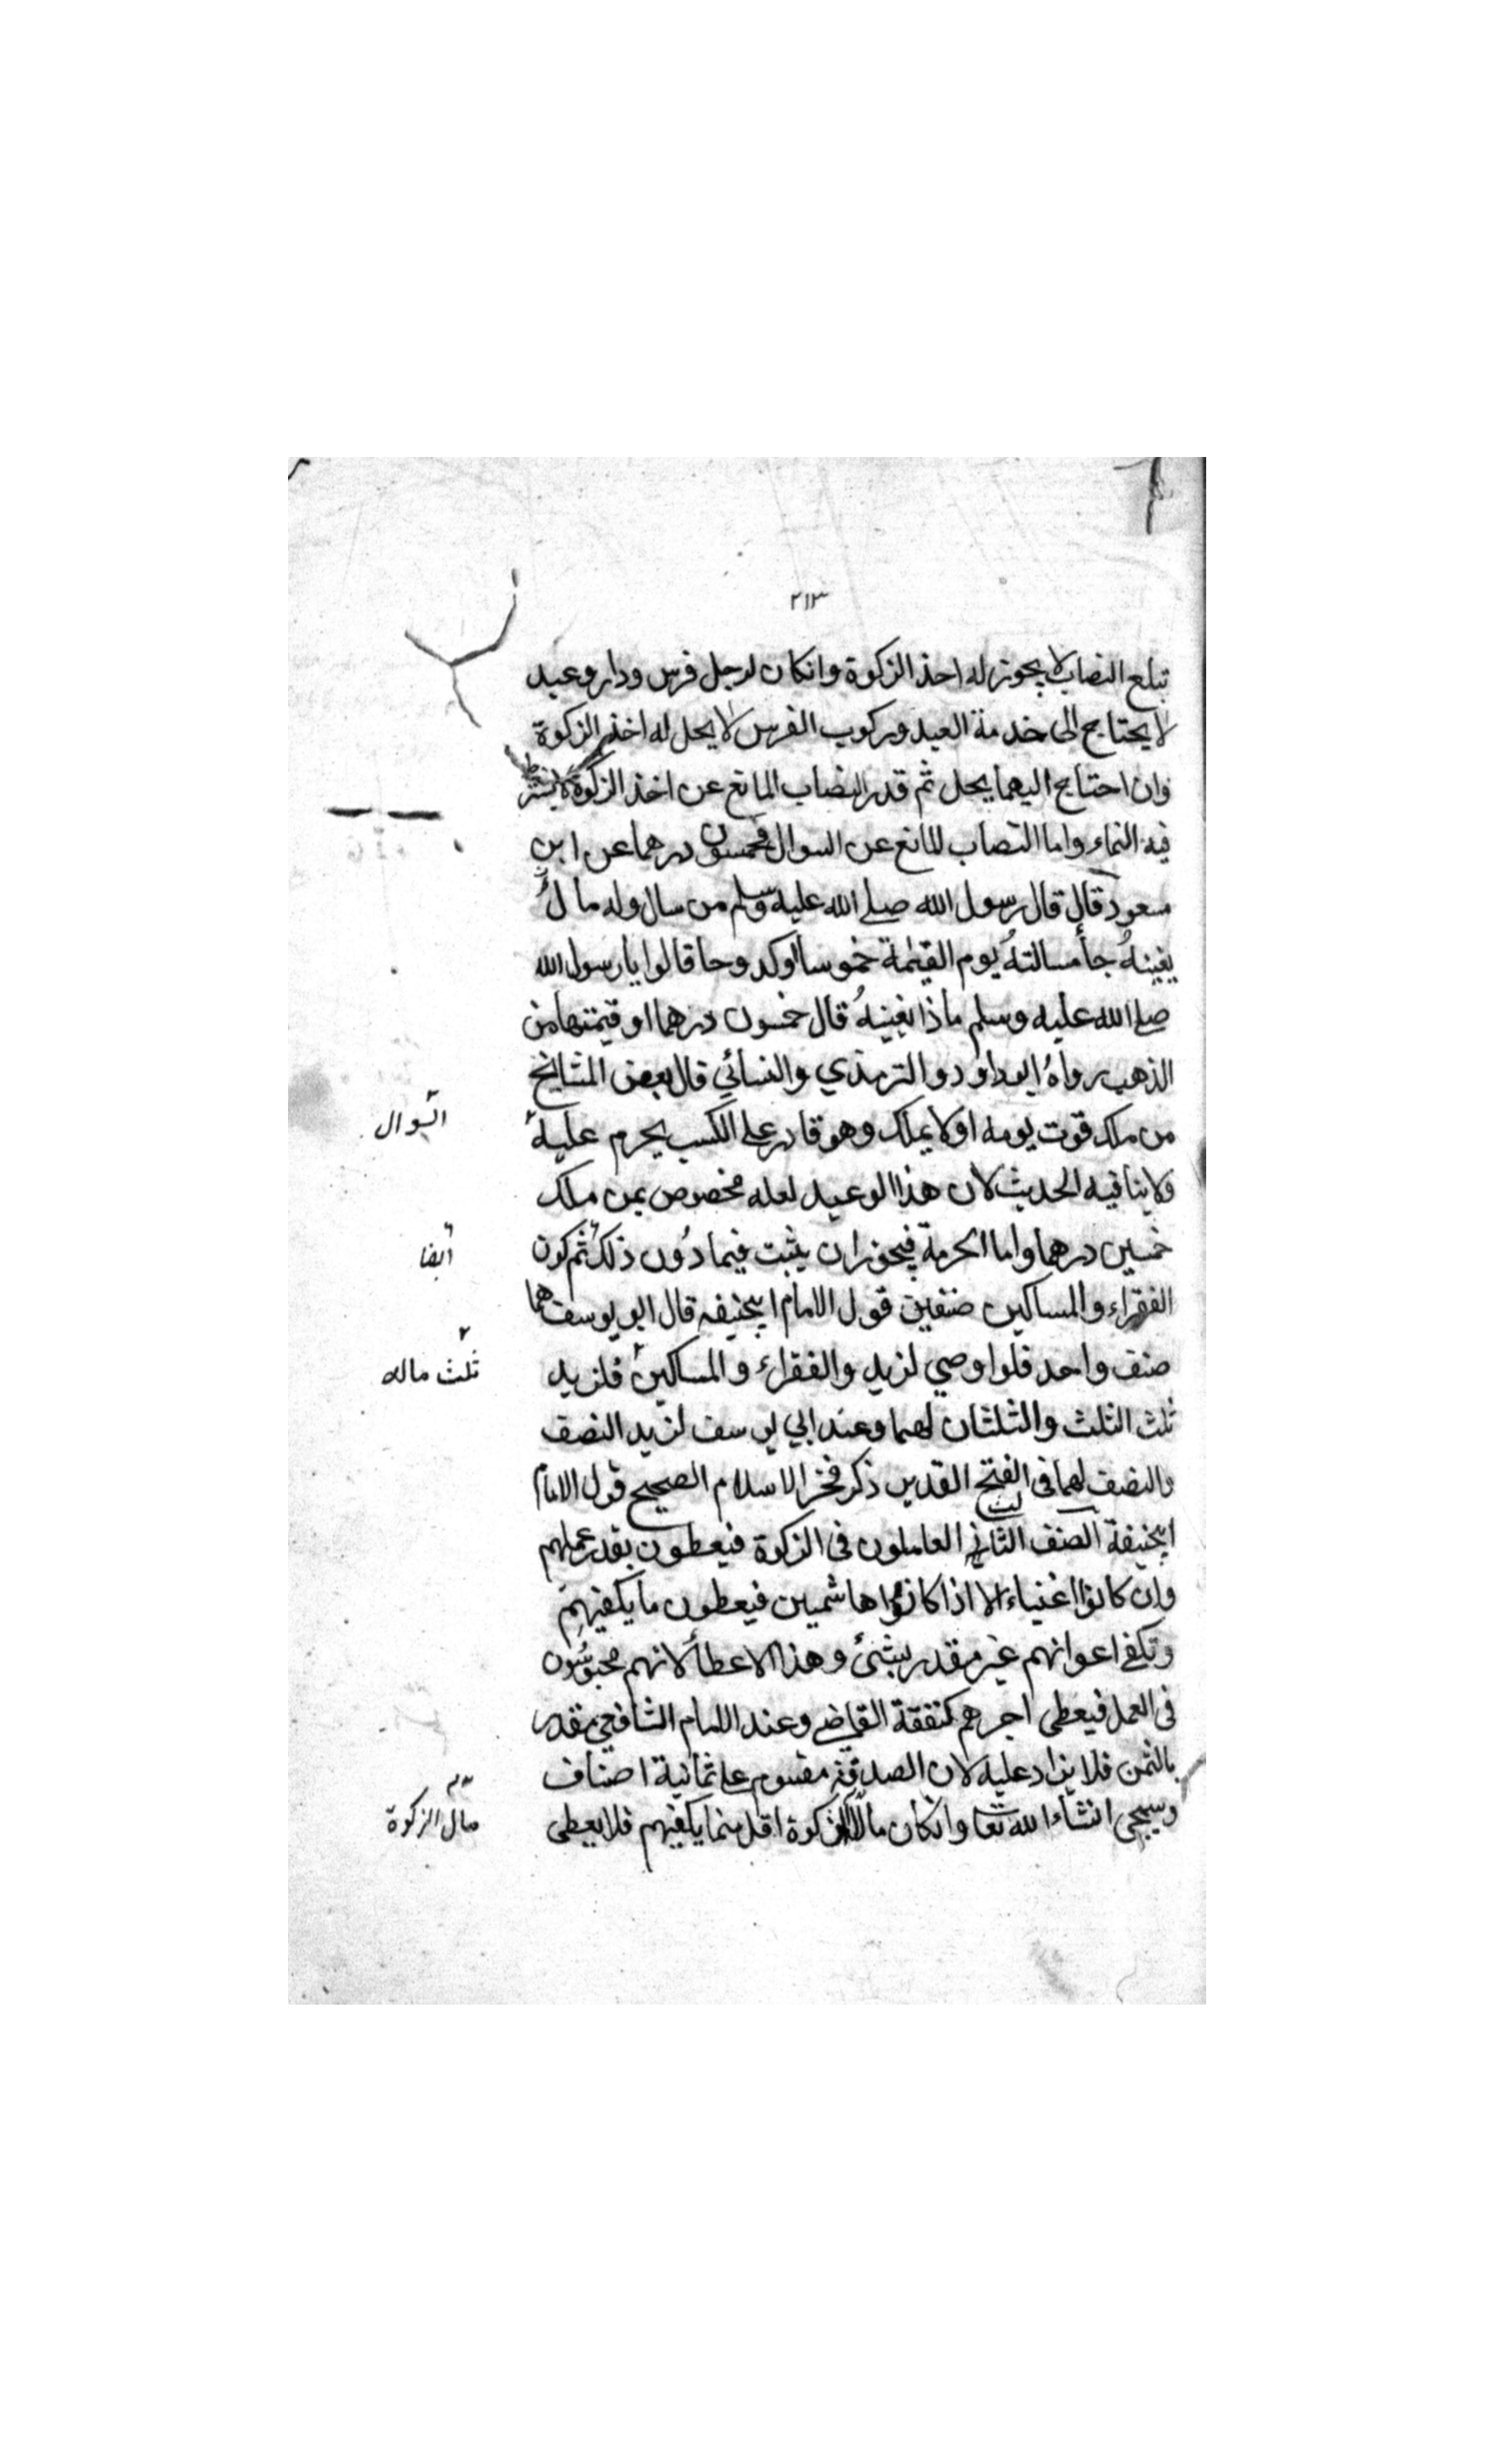 ٢١٣
تبلع النصاب لا يجوز له اخذ الزكوة وانكان لرجل فرس ودار وعبد
لا يحتاج الى خدمة العبد وركوب الفرس لا يحل له اخذ الزكوة
وان احتاج اليهما يحل ثم قدر النصاب المانع عن اخذ الزكوة لا يشترط
فيه النماء واما النصاب المانع عن السوال فخمسون درهما عن ابن
مسعود قال قال رسول الله صلى الله عليه وسلم من سال وله مال
يغنيه جأ مسالته يوم القيمة خموسا اوكدوحا قالوا يارسول الله
صلى الله عليه وسلم ماذا يغنيه قال خمسون درهما او قيمتها من
الذهب رواه ابوداود والترمذي والنسائي قال بعض المشايخ
من ملك قوت يومه او لا يملك وهو قادر على الكسب يحرم عليه
السوال
ولا ينافيه الحديث لان هذا الوعيد لعله مخصوص بمن ملك
خمسين درهما واما الحرمة فيجوز ان يثبت فيما دون ذلك ثم كون
ايضا
الفقراء والمساكين صنفين قول الامام ابيحنيفه قال ابو يوسف هما
صنف واحد فلو اوصي لزيد والفقراء والمساكين فلزيد
ثلث ماله
ثلث الثلث والثلثان لهما وعند ابي يوسف لزيد النصف
والنصف لهما فى الفتح القدير ذكر فخر الاسلام الصحيح قول الامام
ابيحنيفة الصنف الثاني العاملون فى الزكوة فيعطون بقدر عملهم
وان كانوا اغنياء الا اذا كانوا هاشمين فيعطون ما يكفيهم
وتكفى اعوانهم غير مقدر بشئ وهذا الاعطأ لانهم محبوسون
فى العمل فيعطى اجرهم كنفقة القاضى وعند الامام الشافعي مقدر
بالثمن فلا يزاد عليه لان الصدقة مقسوم على ثمانية اصناف
وسيجى انشاء الله تعا وانكان مال الزكوة اقل مما يكفيهم فلا يعطى
مال الزكوة